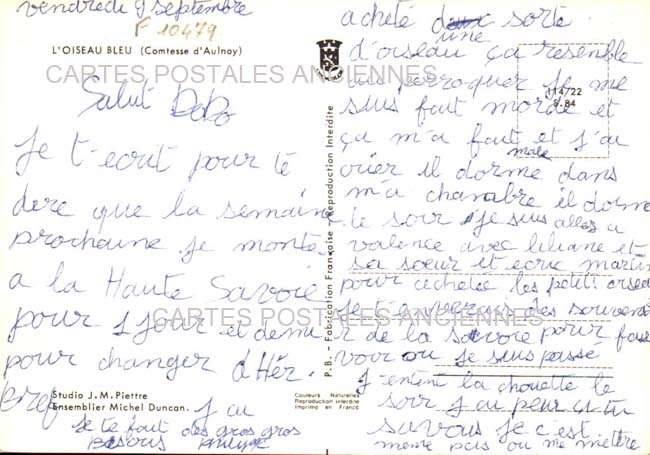 vendredi 9 septembre
F 10479
L'OISEAU BLEU (Comtesse d'Aulnoy)
CARTES POSTALES ANCIENNES
Salut DoDo
Je t-ecrit pour te
dere que la semaine
prochaine je monte
a la Haute Savoie
pour 1 jour et demi
pour changer d'Hér.
Bref j'ai
Studio J.M. Piettre
Ensemblier Michel Duncan.
Je te fait des gros gros
Bisous
P.B. - Fabrication Française - Reproduction Interdite
Couleurs Naturelles
Reproduction interdite
Imprimé en France
114/22
S.84
acheté deux sorte
une
d'oiseau ça resemble
perroquer Je me
suis fait morde et
ça m'a fait et j'ai
male
crier il dorme dans
m'a chanabre il dorme
le soir Je suis allez a
valence avec liliane et
sa soeur et ecric martin
pour cechetee les petits
Je t-a des souvenir
de la savoie pour faire
voir ou je suis passé
J-entent la chouette le
soir j'ai peur si tu
savous Je c'est
meme pas ou me mettre
CARTES POSTALES ANCIENNES